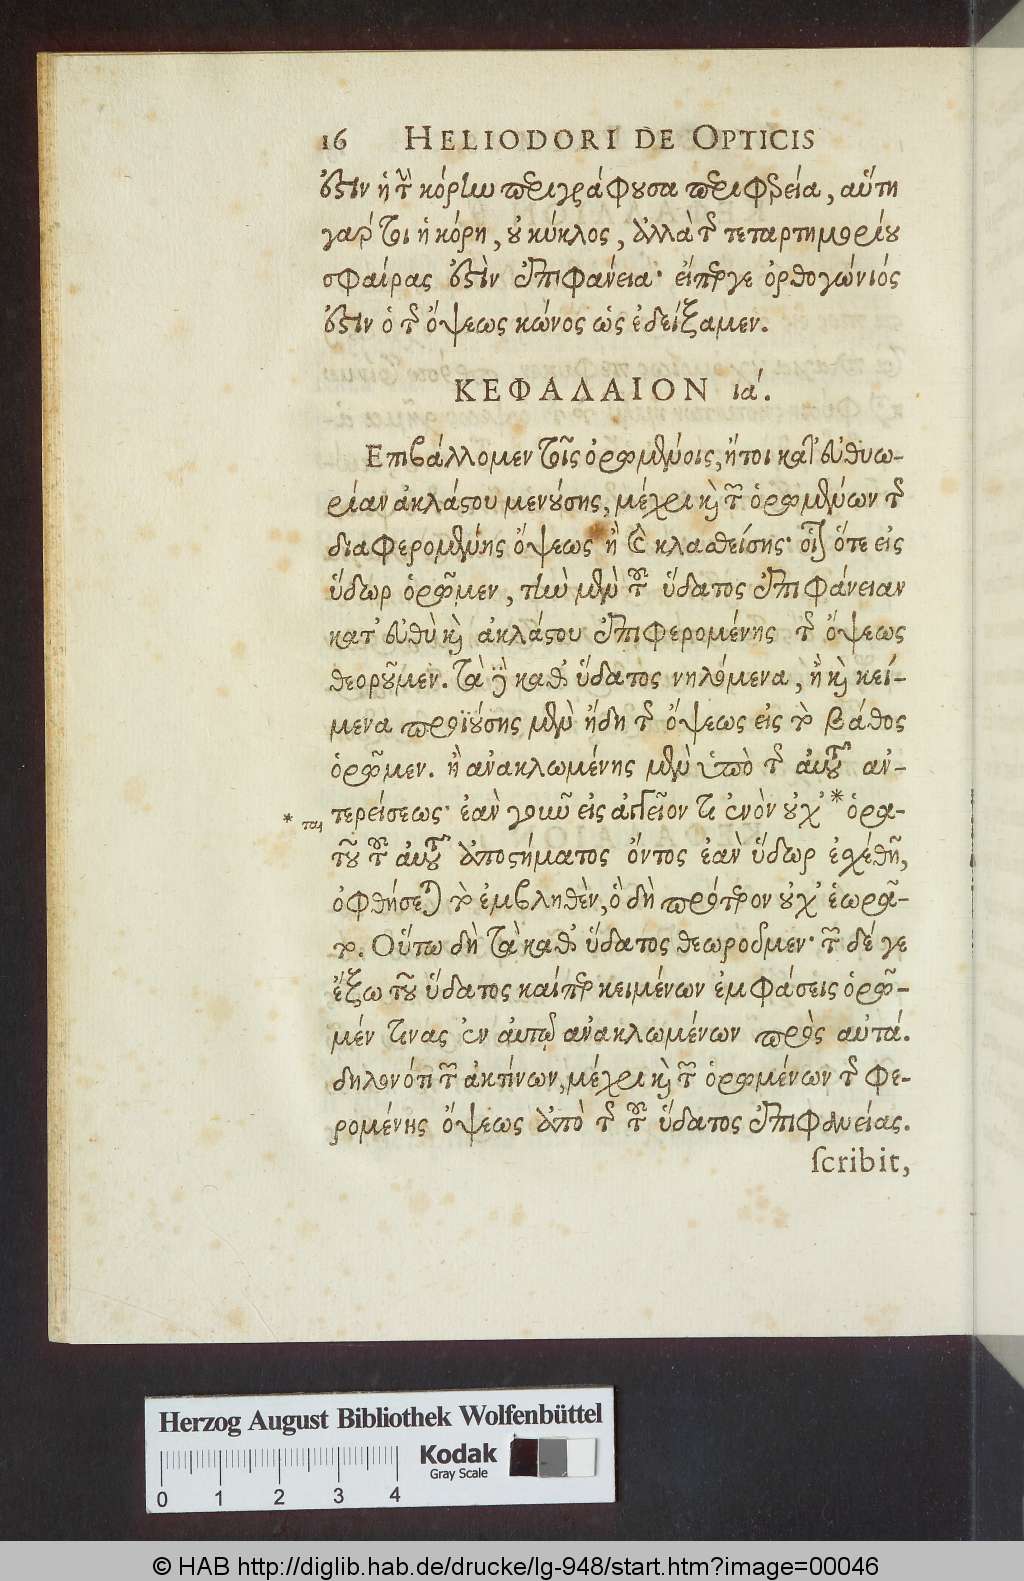 16 HELIODORI DE OPTICIS
ἐστὶν ἡ τὴν κόρην περιγράφουσα περιφέρεια, αὕτη
γάρ τοι ἡ κόρη, οὐ κύκλος, ἀλλὰ τῆς τεταρτημορίου
σφαίρας ἐστὶν ἐπιφάνεια· εἴπεργε ὀρθογώνιός
ἐστιν ὁ τῆς ὄψεως κώνος ὡς ἐδείξαμεν.
ΚΕΦΑΛΑΙΟΝ ια΄.
Επιβάλλομεν τοῖς ὁρωμένοις, ἤτοι κατ' εὐθυω-
ρίαν ἀκλάστου μενούσης, μέχρι καὶ τῶν ὁρωμένων τῆς
διαφερομένης ὄψεως ἢ κλασθείσης· οἷον ὅτε εἰς
ὕδωρ ὁρῶμεν, τὴν μὲν τοῦ ὕδατος ἐπιφάνειαν
κατ' εὐθὺ καὶ ἀκλάστου ἐπιφερομένης τῆς ὄψεως
θεοροῦμεν. Τὰ δὲ καθ' ὕδατος νηχόμενα, ἢ καὶ κεί-
μενα προϊούσης μὲν ἤδη τῆς ὄψεως εἰς τὸ βάθος
ὁρῶμεν. ἢ ἀνακλωμένης μὲν ὑπὸ τῆς αὐτοῦ ἀν-
* ται τερείσεως· ἐὰν γοῦν εἰς ἀγγεῖον τι κενὸν οὐχ' * ὁρα-
τοῦ τοῦ αὐτοῦ ἀποστήματος ὄντος ἐὰν ὕδωρ ἐγχεθῇ,
ὀφθήσεται τὸ ἐμβληθὲν, ὃ δὴ πρότερον οὐχ' ἑωρᾶ-
το. Οὕτω δὴ τὰ καθ' ὕδατος θεωροῦμεν· τῶν δέ γε
ἔξω τοῦ ὕδατος καίπερ κειμένων ἐμφάσεις ὁρῶ-
μέν τινας ἐν αὐτῷ ἀνακλωμένων πρὸς αὐτά.
δηλονότι τῶν ἀκτίνων, μέχρι καὶ τῶν ὁρωμένων τῆς φε-
ρομένης ὄψεως ἀπὸ τῆς τοῦ ὕδατος ἐπιφανείας.
ſcribit,
Herzog August Bibliothek Wolfenbüttel
Kodak
Gray Scale
0 1 2 3 4
© HAB http://diglib.hab.de/drucke/lg-948/start.htm?image=00046